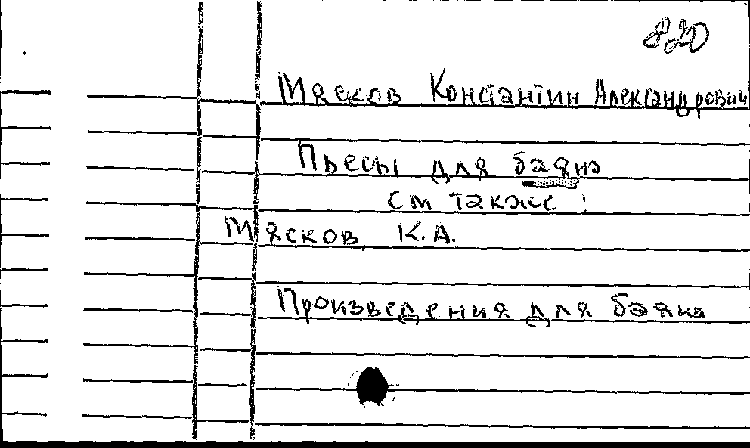 820
Мясков Константин Александрович
Пьесы для баяна
см также:
Мясков К.А.
Произведения для баяна